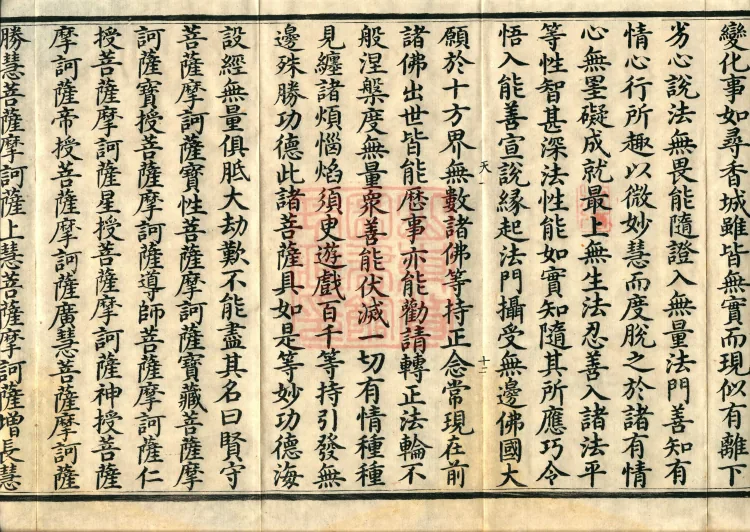 變化事如尋香城雖皆無實而現似有離下
劣心說法無畏能隨證入無量法門善知有
情心行所趣以微妙慧而度脫之於諸有情
心無罣礙成就最上無生法忍善入諸法平
等性智甚深法性能如實知隨其所應巧令
悟入能善宣說緣起法門攝受無邊佛國大
天一
十二
願於十方界無數諸佛等持正念常現在前
諸佛出世皆能歷事亦能勸請轉正法輪不
般涅槃度無量衆善能伏滅一切有情種種
見纏諸煩惱焰須臾遊戲百千等持引發無
邊殊勝功德此諸菩薩具如是等妙功德海
設經無量俱胝大劫歎不能盡其名曰賢守
菩薩摩訶薩寶性菩薩摩訶薩寶藏菩薩摩
訶薩寶授菩薩摩訶薩導師菩薩摩訶薩仁
授菩薩摩訶薩星授菩薩摩訶薩神授菩薩
摩訶薩帝授菩薩摩訶薩廣慧菩薩摩訶薩
勝慧菩薩摩訶薩上慧菩薩摩訶薩增長慧